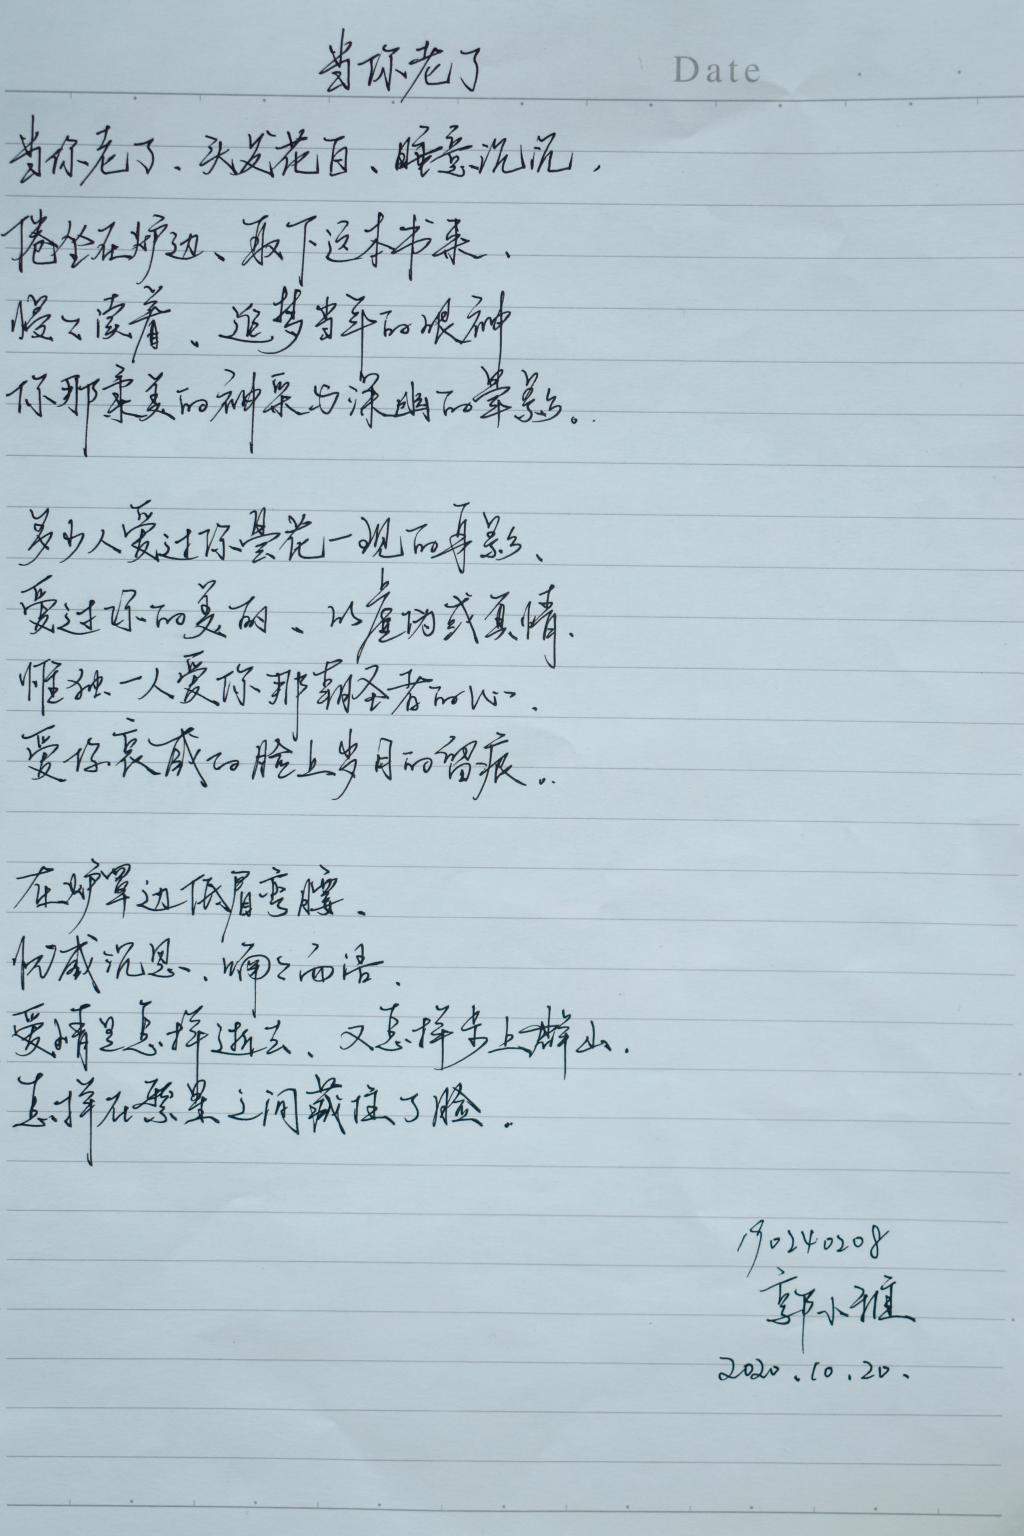 当你老了
Date
当你老了、头发花白、睡意沉沉，
倦坐在炉边、取下这本书来，
慢慢读着、追梦当年的眼神
你那柔美的神采与深幽的晕影。
多少人爱过你昙花一现的身影、
爱过你的美丽、以虚伪或真情，
惟独一人爱你那朝圣者的心，
爱你哀戚的脸上岁月的留痕。
在炉罩边低眉弯腰、
忧戚沉思、喃喃而语，
爱情是怎样逝去、又怎样步上群山，
怎样在繁星之间藏住了脸。
190240208
郭小雅
2020.10.20.